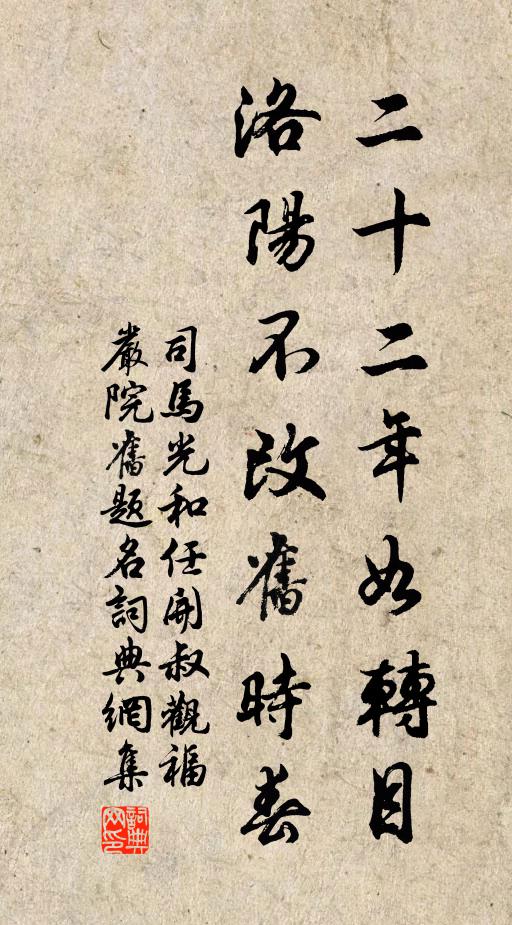 二十二年如轉目
洛陽不改舊時春
司馬光和任開叔觀福
嚴院舊題名詞典網集
詞典网印